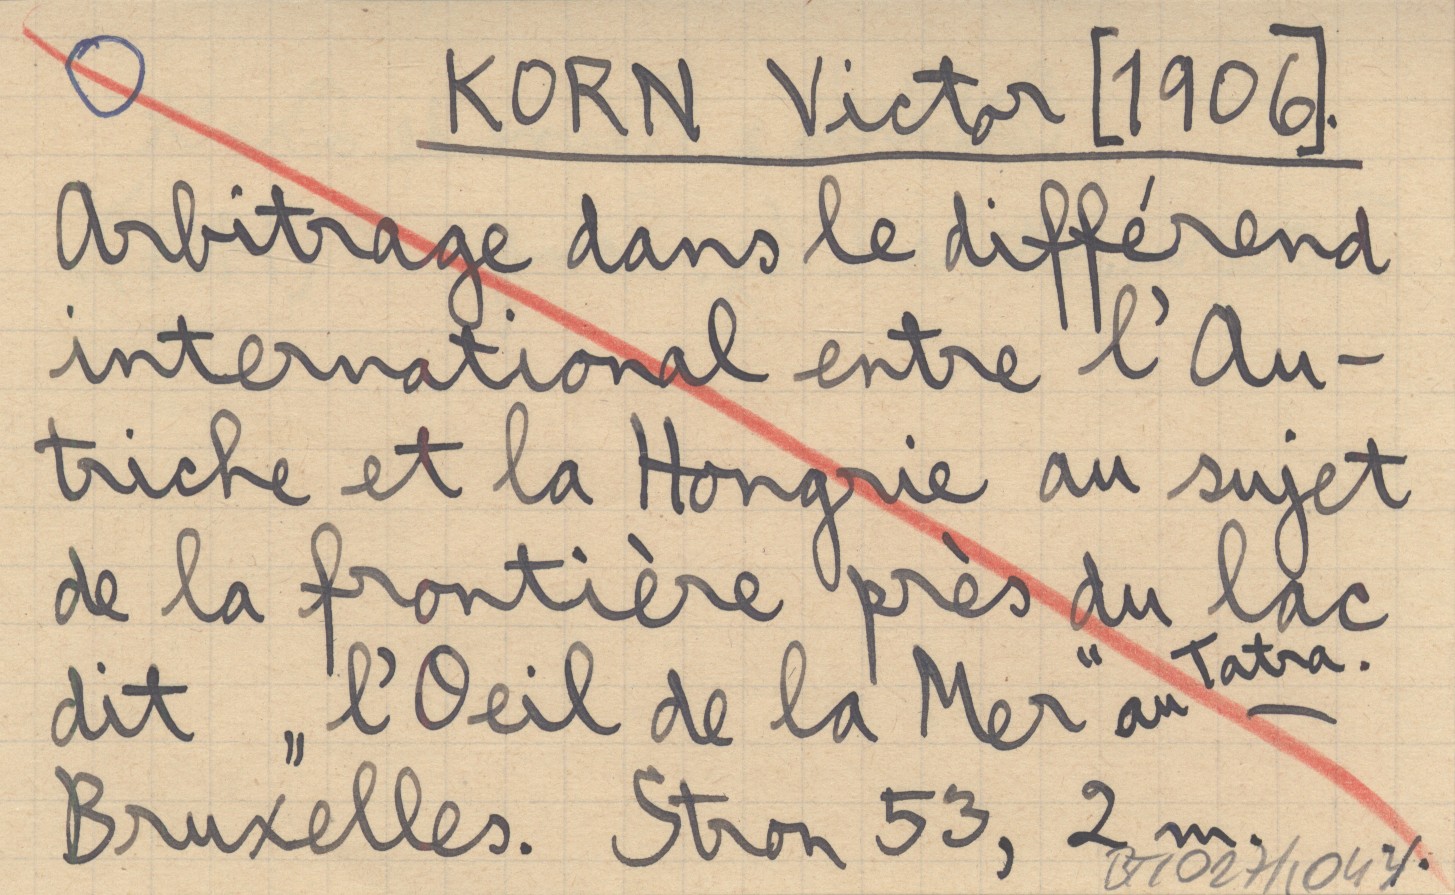 KORN Victor [1906].
Arbitrage dans le différend
international entre l'Au-
triche et la Hongrie au sujet
de la frontière près du lac
dit „l'Oeil de la Mer" au Tatra. —
Bruxelles. Stron 53, 2 m.